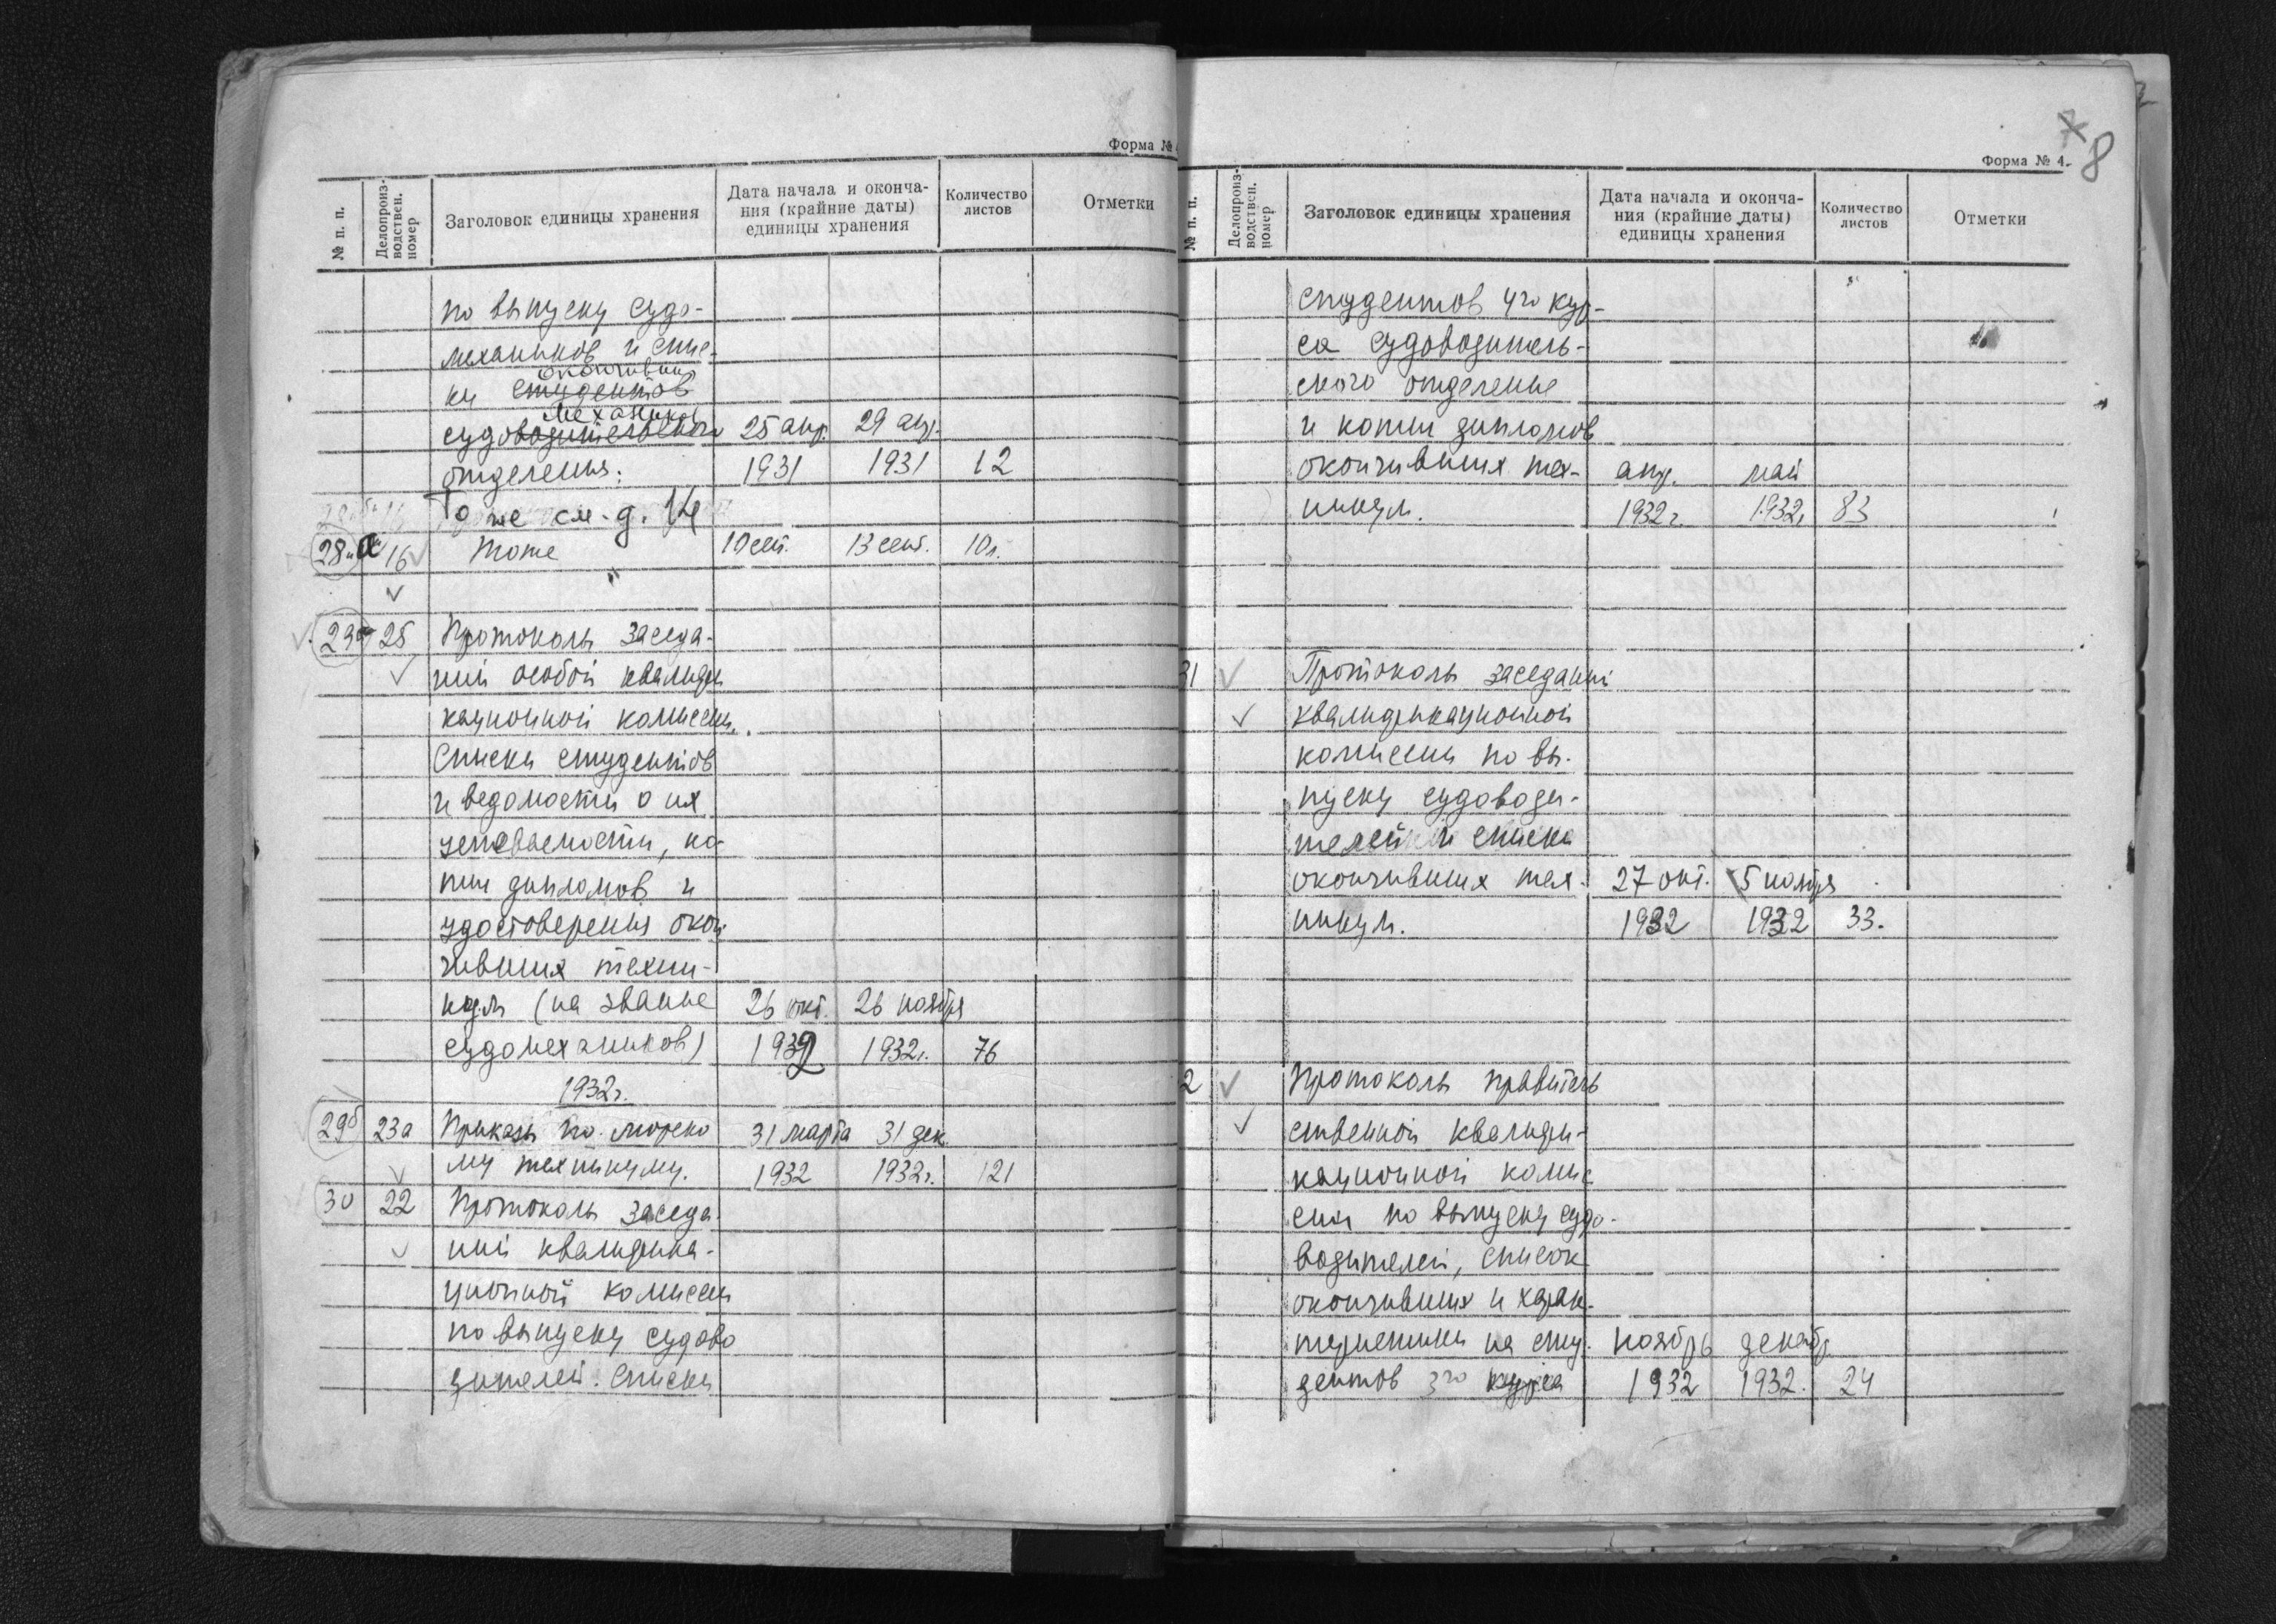 Форма №
№ п. п.
Делопроиз-
водствен.
номер
Заголовок единицы хранения
Дата начала и оконча-
ния (крайние даты)
единицы хранения
Количество
листов
Отметки
по выпуску судо-
механиков и спис-
окончивши
ки студентов
механиков
судоводительского 25 апр. 29 апр.
отделения. 1931 1931 12
То же см. д. 14
28 "а" 16 Тоже 10 сент. 13 сент. 10 л.
"
29а 25 Протоколы заседа-
ний особой квалифи
кационной комиссии.
Списки студентов
и ведомости о их
успеваемости, ко-
пии дипломов и
удостоверения окон
чивших техни-
кум (на звание 26 окт. 26 ноября
судомехаников) 1932 1932г. 76
1932г.
29б 23а Приказы по морско
му техникуму. 31 марта 31 дек.
1932 1932г. 121
30 22 Протоколы заседа
ний квалифика-
ционной комиссии
по выпуску судово
дителей. Списки
7 8
Форма № 4.
№ п. п.
Делопроиз-
водствен.
номер
Заголовок единицы хранения
Дата начала и оконча-
ния (крайние даты)
единицы хранения
Количество
листов
Отметки
студентов 4го кур-
са судоводитель-
ского отделение
и копии дипломов
окончивших тех- апр. май
никум. 1932г. 1932г. 83
31 Протоколы заседаний
квалификационной
комиссии по вы-
пуску судоводи-
телей и списки
окончивших тех- 27 окт. 5 ноября
никум. 1932 1932 33.
2 Протоколы правитель
ственной квалифи-
кационной комис
сии по выпуску судо-
водителей, список
окончивших и харак-
теристики на сту- ноябрь декабр.
дентов 3го курса 1932 1932. 24